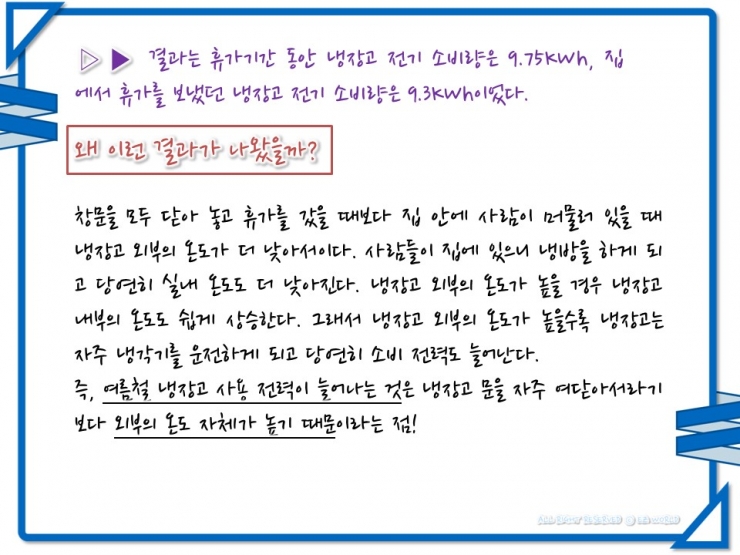 결과는 휴가기간 동안 냉장고 전기 소비량은 9.75KWh, 집
에서 휴가를 보냈던 냉장고 전기 소비량은 9.3KWh이었다.
왜 이런 결과가 나왔을까?
창문을 모두 닫아 놓고 휴가를 갔을 때보다 집 안에 사람이 머물러 있을 때
냉장고 외부의 온도가 더 낮아서이다. 사람들이 집에 있으니 냉방을 하게 되
고 당연히 실내 온도도 더 낮아진다. 냉장고 외부의 온도가 높을 경우 냉장고
내부의 온도도 쉽게 상승한다. 그래서 냉장고 외부의 온도가 높을수록 냉장고는
자주 냉각기를 운전하게 되고 당연히 소비 전력도 늘어난다.
즉, 여름철 냉장고 사용 전력이 늘어나는 것은 냉장고 문을 자주 여닫아서라기
보다 외부의 온도 자체가 높기 때문이라는 점!